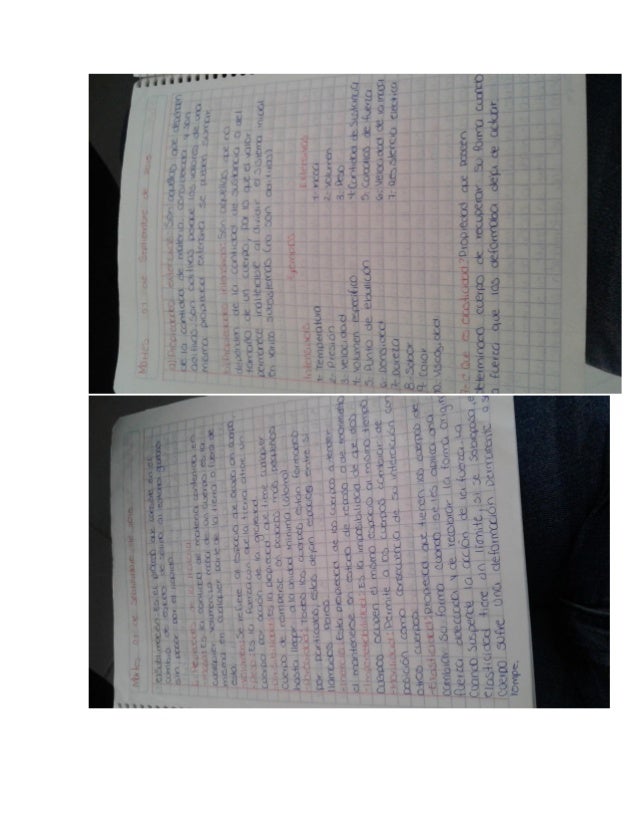 Martes 01 de Septiembre de 2015
a) Propiedades extensivas: Son aquellas que dependen
de la cantidad de materia considerada y son
aditivas. Son aditivas porque los valores de una
misma propiedad extensiva se pueden sumar
b) Propiedades intensivas: Son aquellas que no
dependen de la cantidad de sustancia o del
tamaño de un cuerpo, por lo que el valor
permanece inalterable al dividir el sistema inicial
en varios subsistemas (no son aditivas)
Ejemplos
Intensivas
1. Temperatura
2. Presión
3. Velocidad
4. Volumen especifico
5. Punto de ebullición
6. Densidad
7. Dureza
8. Sabor
9. Color
10. Viscosidad
Extensivas
1. masa
2. Volumen
3. Peso
4. Cantidad de Sustancia
5. Cambios de fuerza
6. Velocidad de la masa
7. Resistencia electrica
¿Que es elasticidad? Propiedad que poseen
determinado cuerpo de recuperar su forma cuando
la fuerza que los deformaba deja de actuar
Martes 01 de Septiembre de 2015
Sublimación: es el proceso que consiste en el
cambio de estado de solido al estado gaseoso
sin pasar por el liquido
Propiedades de la materia
masa: Es la cantidad de materia contenida en
cualquier volumen, la masa de un cuerpo es la
misma en cualquier parte de la tierra o fuera de
ella
Volumen: Se refiere al espacio que ocupa un cuerpo
Peso: Es la fuerza con que la tierra atrae un
cuerpo por acción de la gravedad
Divisibilidad: es la propiedad que tiene cualquier
cuerpo de en pedazos más pequeños
hasta llegar a la unidad minima (atomo)
Porosidad: Todos los cuerpos están formados
por particulas, estas dejan espacios entre si
llamados poros
Inercia: Es la propiedad de los cuerpos a tender
a mantenerse en estado de reposo o de movimiento
Impenetrabilidad: Es la imposibilidad de que dos
cuerpos ocupen el mismo espacio al mismo tiempo
Movilidad: Permite a los cuerpos cambiar de
posición como consecuencia de su interacción con
otros cuerpos
Elasticidad: propiedad que tienen los cuerpos de
cambiar su forma cuando se les aplica una
fuerza adecuada y de recobrar la forma origin
cuando suspende la acción de la fuerza. La
elasticidad tiene un limite, si se sobrepasa, e
cuerpo sufre una deformación permanente o s
rompe.